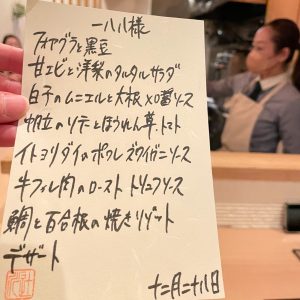 一八八様
フォアグラと黒豆
甘エビと洋梨のタルタルサラダ
白子のムニエルと大根 XO醤ソース
帆立のソテーとほうれん草.トマト
イトヨリダイのポワレ ズワイガニソース
牛フィレ肉のロースト トリュフソース
鯛と百合根の焼きリゾット
デザート
十二月二十八日